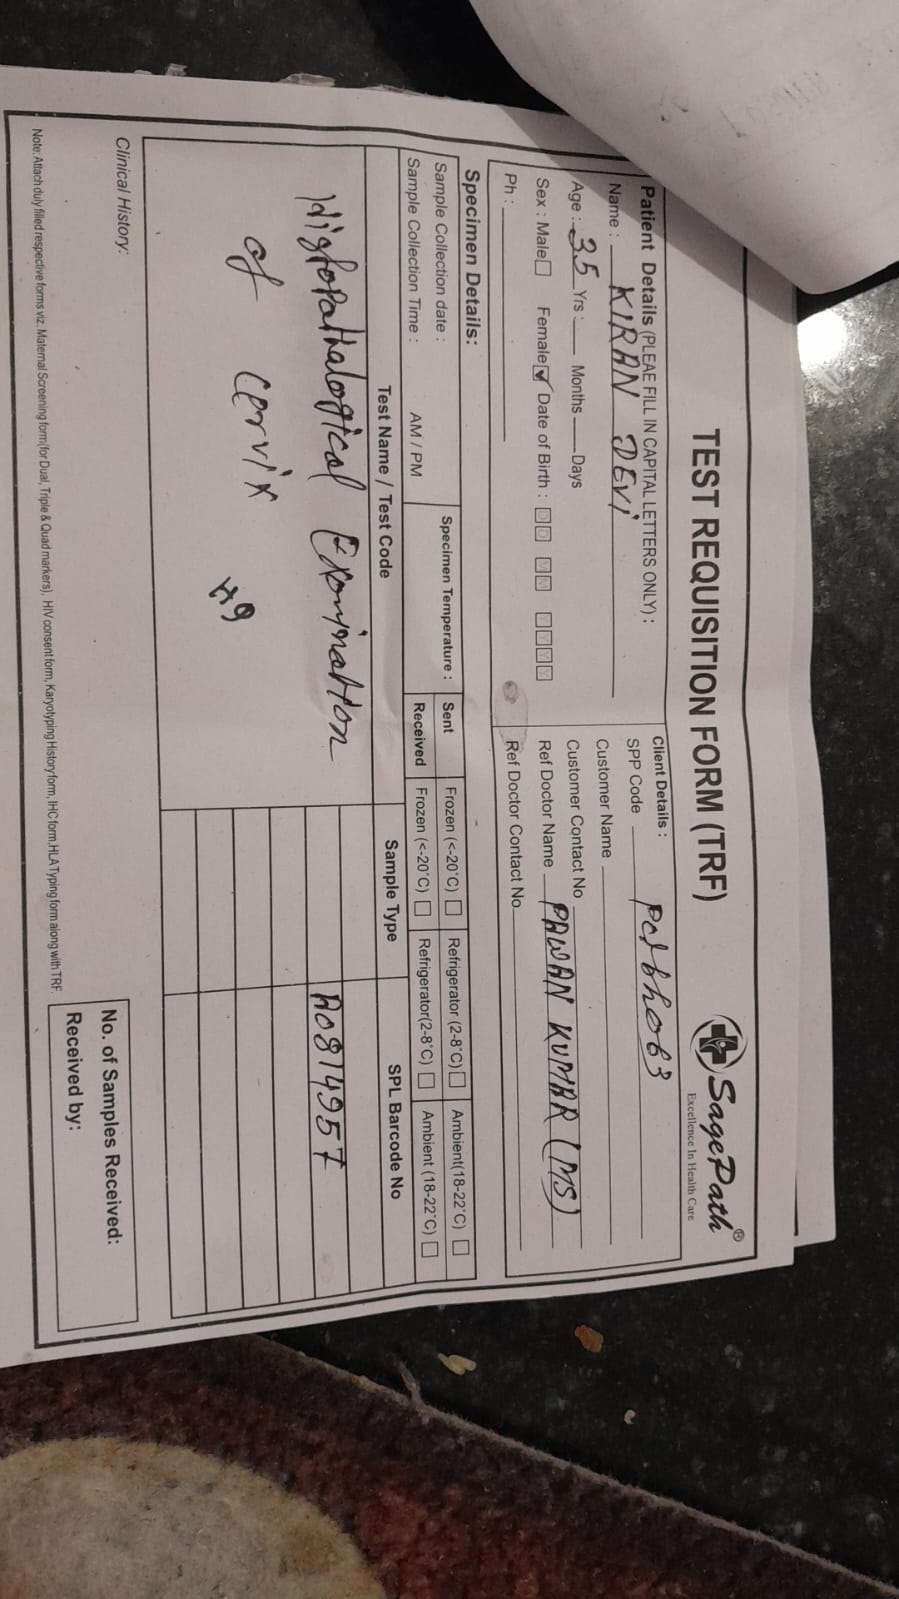 TEST REQUISITION FORM (TRF)
SagePath®
Excellence In Health Care
Patient Details (PLEAE FILL IN CAPITAL LETTERS ONLY):
Name : KIRAN DEVI
Age : 35 Yrs : Months Days
Sex : Male Female ✓ Date of Birth : D D M M Y Y Y Y
Ph :
Client Details :
SPP Code
Customer Name
Customer Contact No
Ref Doctor Name PAWAN KUMAR (MS)
Ref Doctor Contact No
Specimen Details:
Sample Collection date :
Sample Collection Time : AM / PM
Specimen Temperature :
Sent Frozen (<-20°C) Refrigerator (2-8°C) Ambient(18-22°C)
Received Frozen (<-20°C) Refrigerator(2-8°C) Ambient (18-22°C)
Test Name / Test Code Sample Type SPL Barcode No
Histopathalogical Examination A0814957
of cervix
Clinical History:
No. of Samples Received:
Received by:
Note: Attach duly filled respective forms viz. Maternal Screening form(for Dual, Triple & Quad markers), HIV consent form, Karyotyping History form, IHC form,HLA Typing form along with TRF.